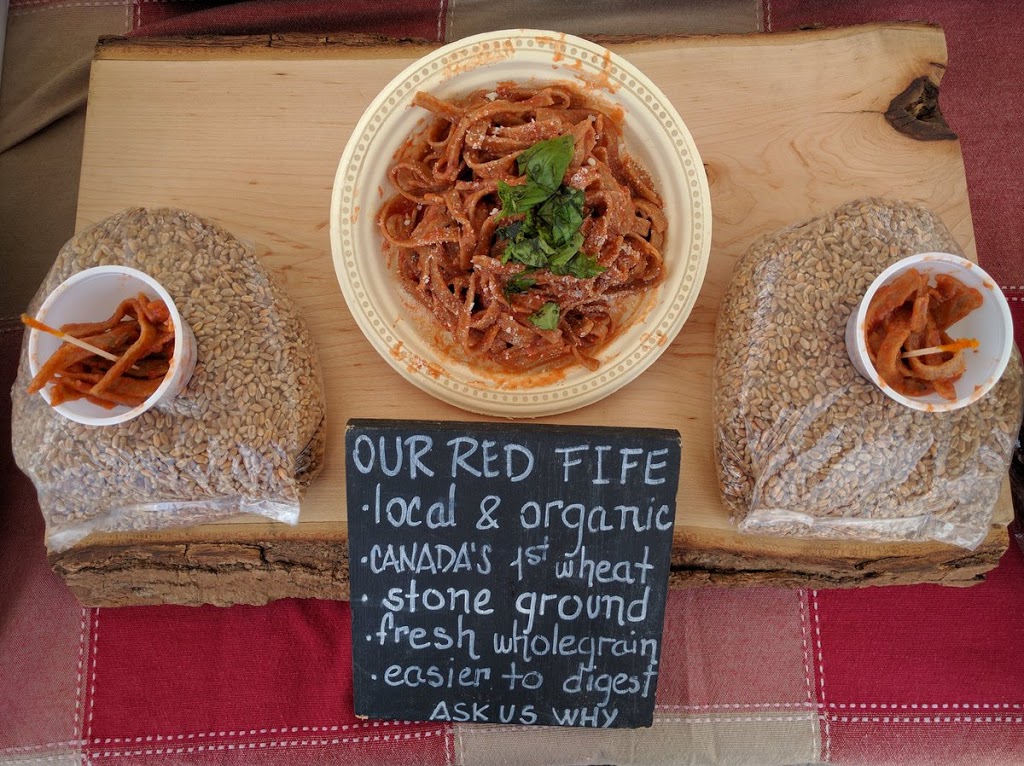 OUR RED FIFE
·local & organic
·CANADA'S 1st wheat
·stone ground
·fresh wholegrain
·easier to digest
ASK US WHY